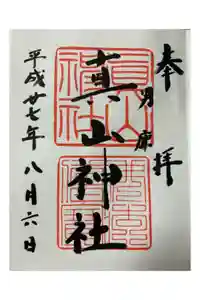 奉拝
男鹿
真山神社
平成廿七年八月六日